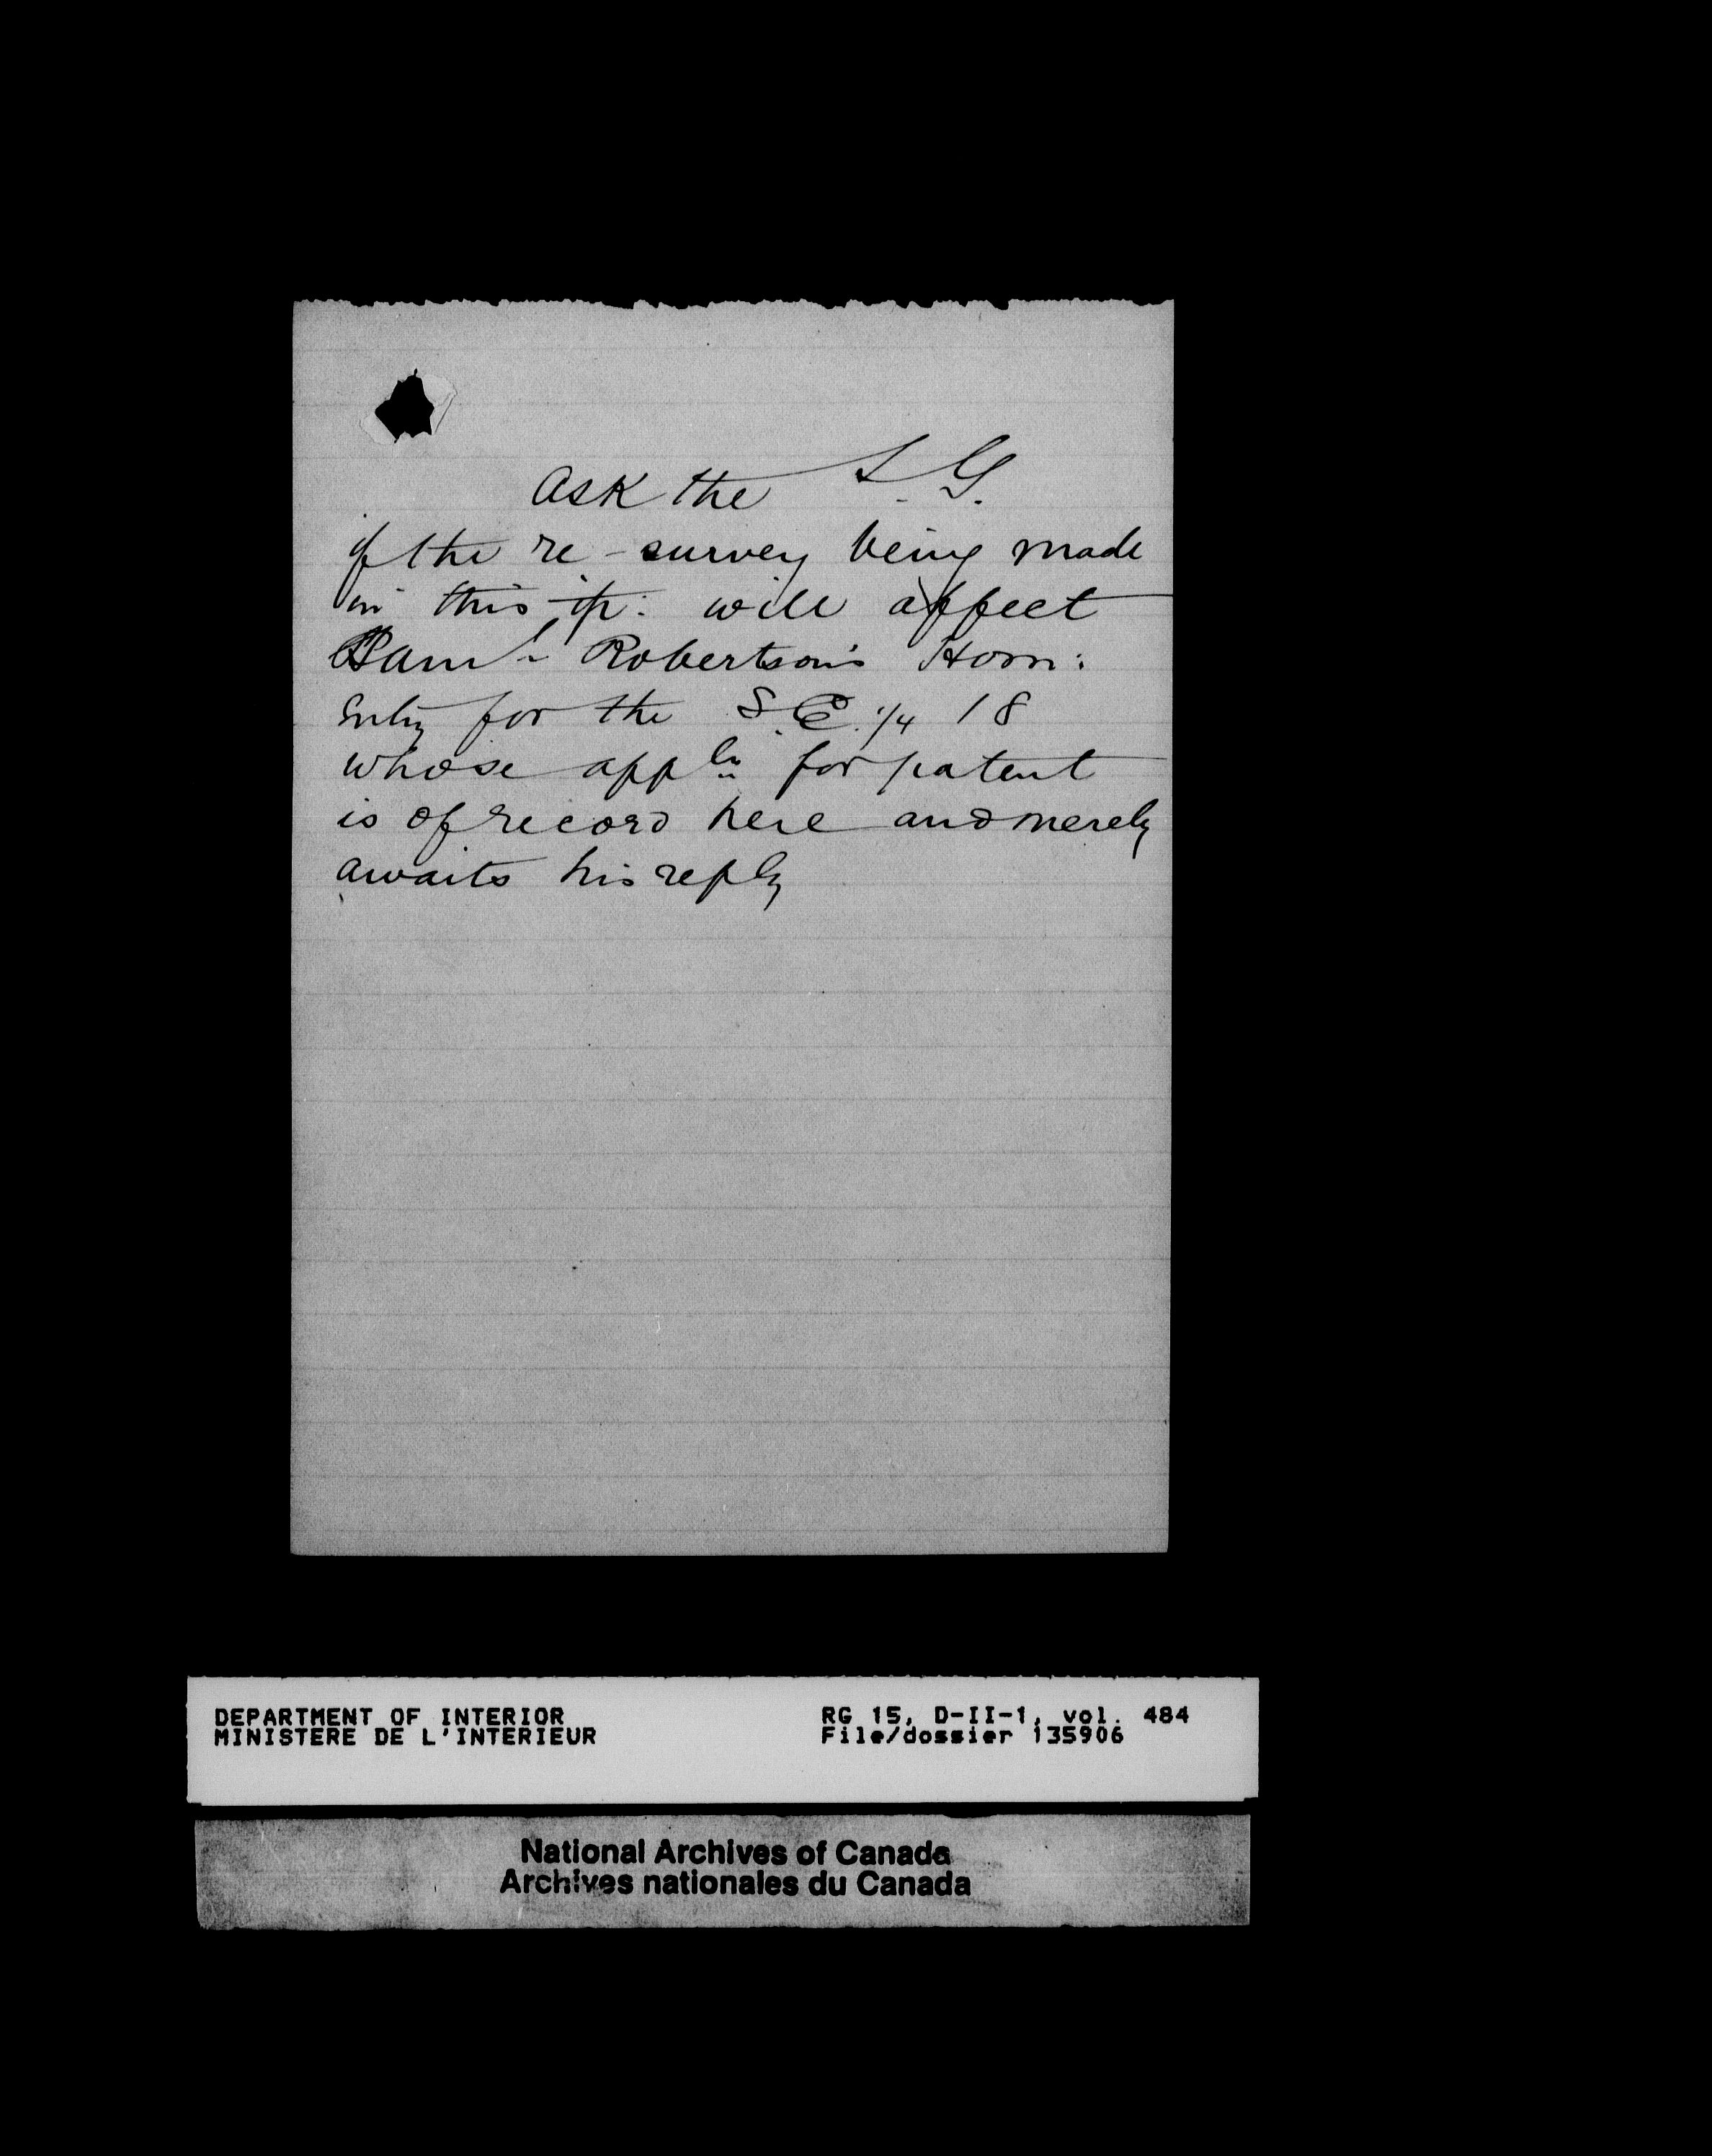 Ask the S. G.
if the re-survey being made
in this tp: will affect
Saml Robertson's Hom:
Entry for the S.E. 1/4 18
whose appln for patent
is of record here and merely
awaits his reply
DEPARTMENT OF INTERIOR
MINISTERE DE L'INTERIEUR
RG 15, D-II-1, vol. 484
File/dossier 135906
National Archives of Canada
Archives nationales du Canada